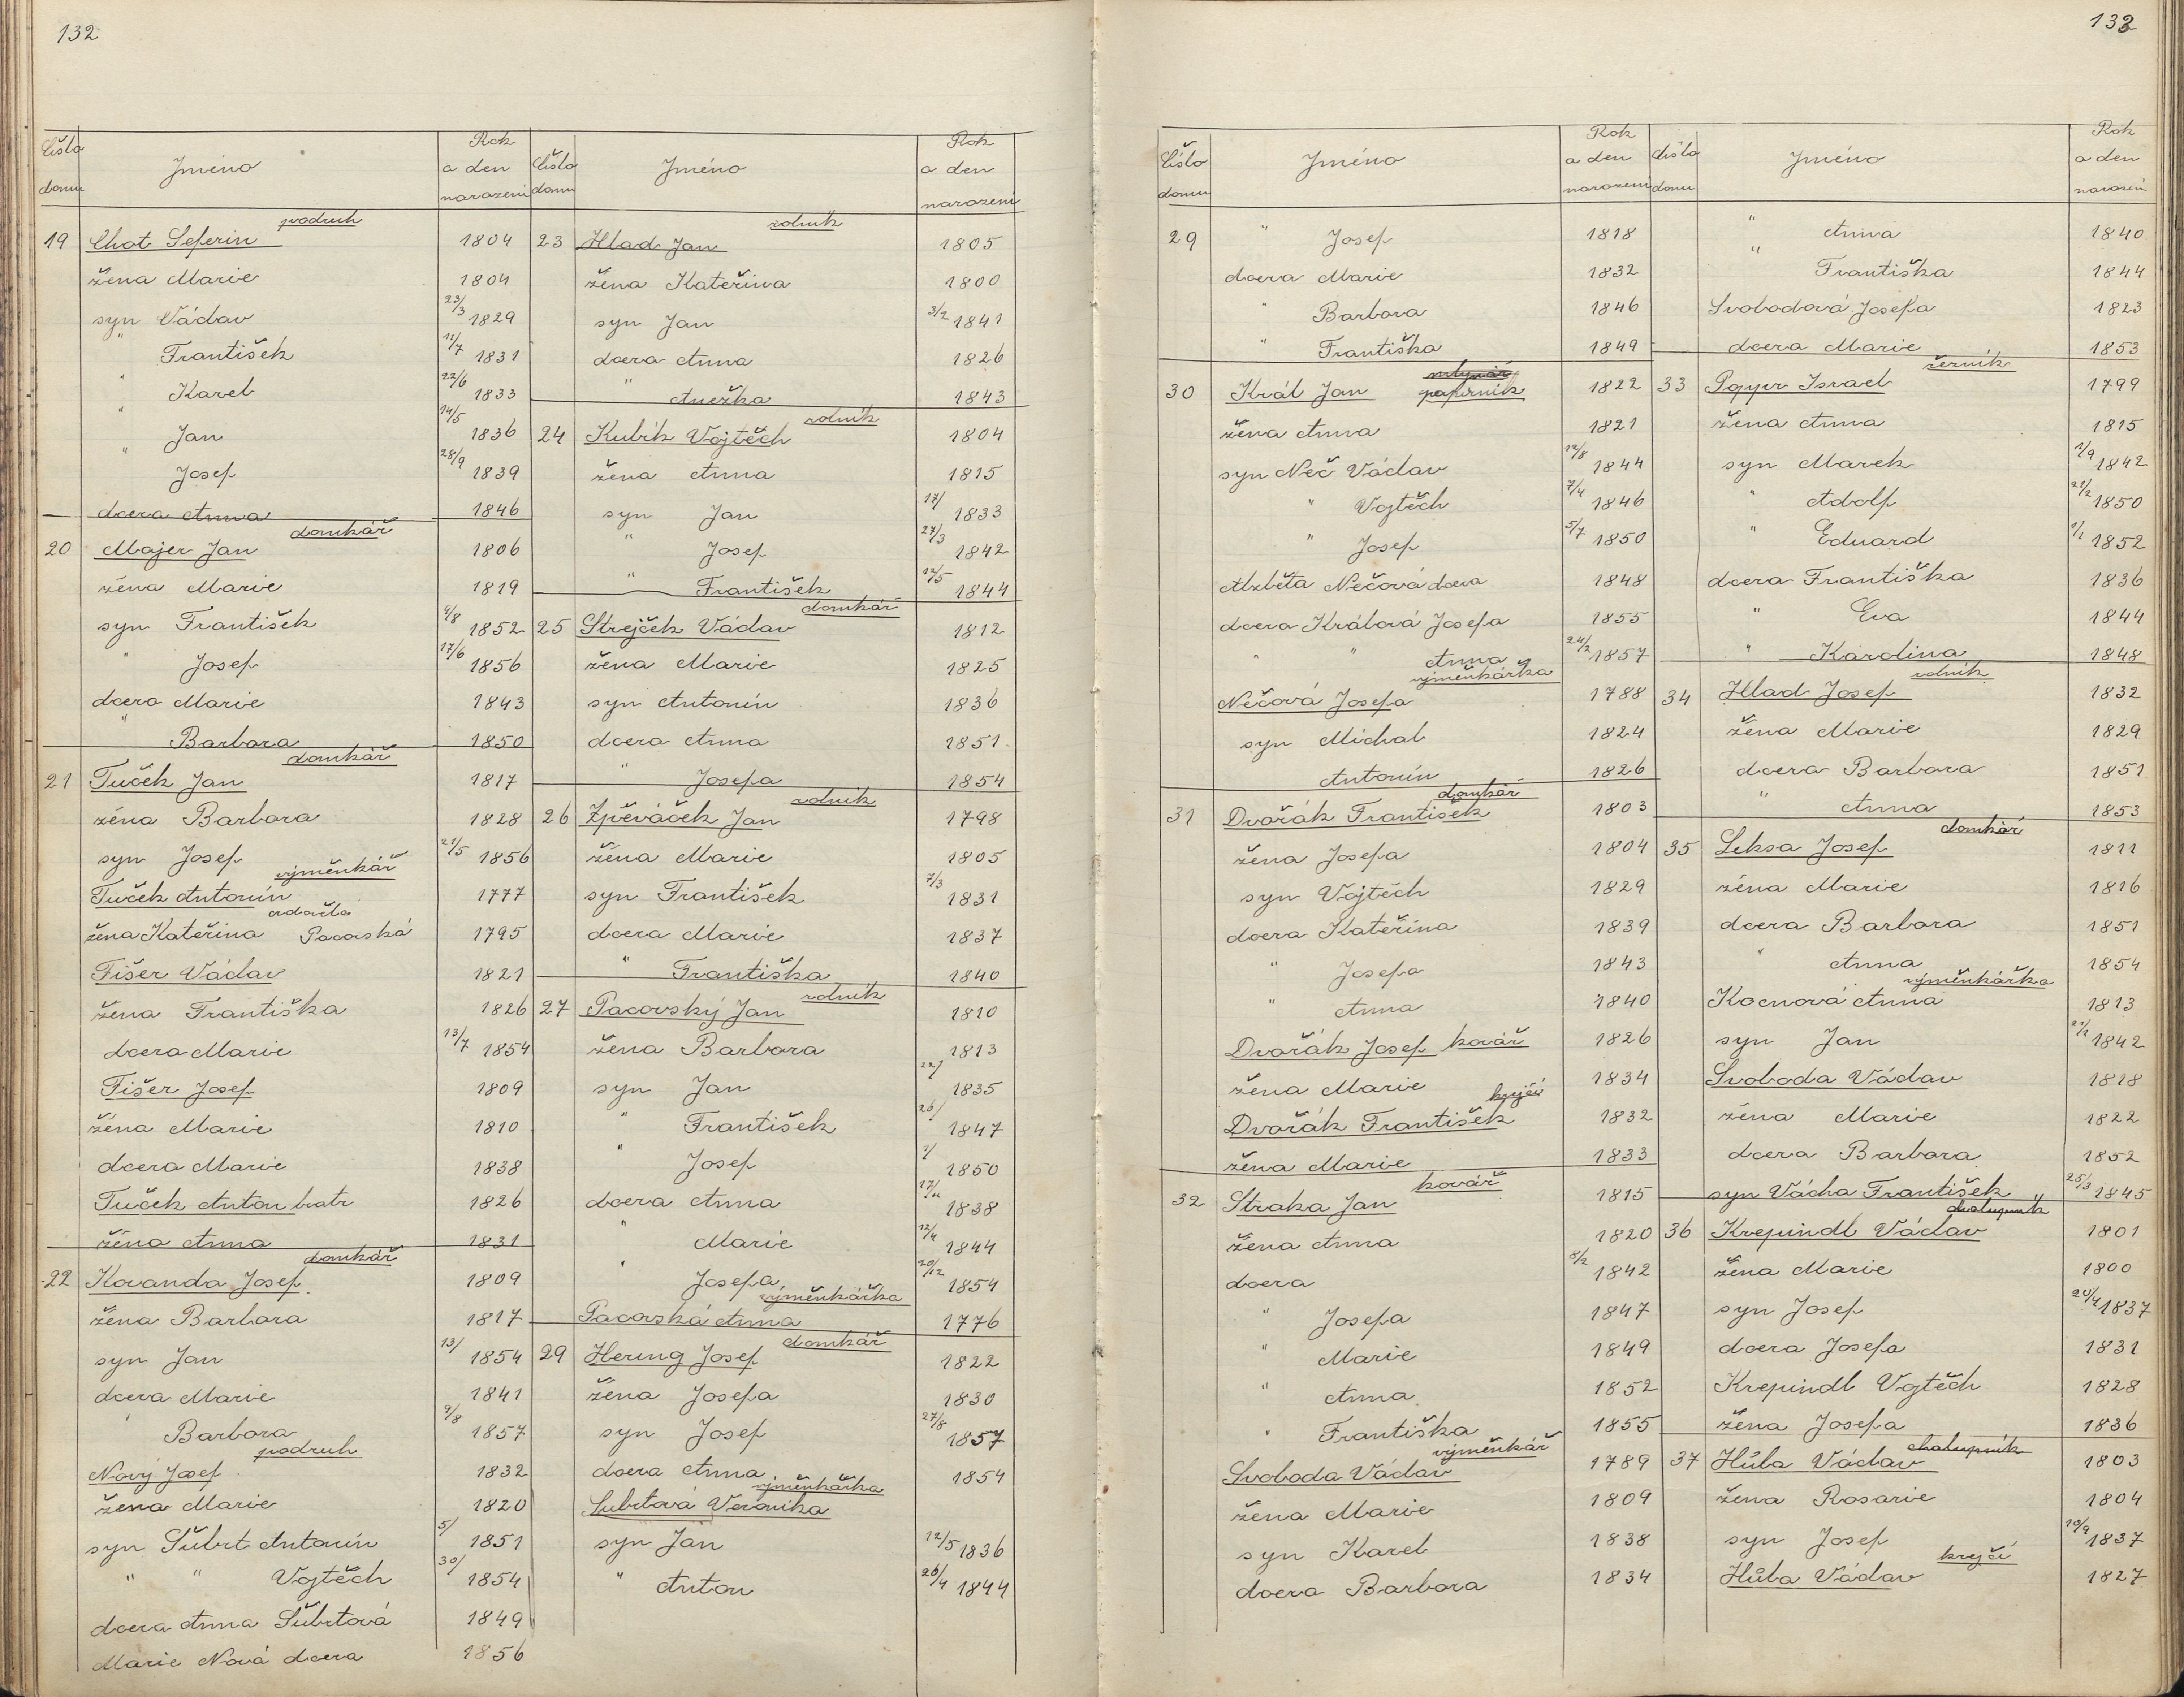 132
Číslo domu Jméno Rok a den narození
podruh
19 Chot Seferin 1804
žena Marie 1804
syn Václav 23/3 1829
" František 11/7 1831
" Karel 22/6 1833
" Jan 14/5 1836
" Josef 28/9 1839
dcera Anna 1846
domkář
20 Majer Jan 1806
žena Marie 1819
syn František 9/8 1852
" Josef 17/6 1856
dcera Marie 1843
" Barbara 1850
domkář
21 Tuček Jan 1817
žena Barbora 1828
syn Josef 21/5 1856
výměnkář
Tuček Antonín 1777
žena Kateřina Pacovská 1795
Fišer Václav 1821
žena Františka 1826
dcera Marie 13/7 1854
Fišer Josef 1809
žena Marie 1810
dcera Marie 1838
Tuček Anton bratr 1826
žena Anna 1831
domkář
22 Kovanda Josef 1809
žena Barbora 1817
syn Jan 13/ 1854
dcera Marie 1841
" Barbora 9/8 1857
podruh
Nový Josef 1832
žena Marie 1820
syn Šubrt Antonín 5/ 1851
" " Vojtěch 30/ 1854
dcera Anna Šubrtová 1849
Marie Nová dcera 1856
Číslo domu Jméno Rok a den narození
rolník
23 Hlad Jan 1805
žena Kateřina 1800
syn Jan 3/2 1841
dcera Anna 1826
" Anežka 1843
rolník
24 Kubík Vojtěch 1804
žena Anna 1815
syn Jan 17/ 1833
" Josef 27/3 1842
" František 12/5 1844
domkář
25 Strejček Václav 1812
žena Marie 1825
syn Antonín 1836
dcera Anna 1851
" Josefa 1854
rolník
26 Zpěváček Jan 1798
žena Marie 1805
syn František 7/3 1831
dcera Marie 1837
" Františka 1840
rolník
27 Pacovský Jan 1810
žena Barbora 1813
syn Jan 22/ 1835
" František 26/ 1847
" Josef 1850
dcera Anna 1838
" Marie 12/4 1844
" Josefa 20/12 1854
výměnkářka
Pacovská Anna 1776
domkář
29 Hering Josef 1822
žena Josefa 1830
syn Josef 27/8 1857
dcera Anna 1854
výměnkářka
Šubrtová Veronika
syn Jan 12/5 1836
" Anton 26/4 1844
133
Číslo domu Jméno Rok a den narození
29 " Josef 1818
dcera Marie 1832
" Barbora 1846
" Františka 1849
mlynář
30 Král Jan papírník 1822
žena Anna 1821
syn Neč Václav 12/8 1844
" Vojtěch 7/4 1846
" Josef 5/7 1850
Alzběta Nečová dcera 1848
dcera Králová Josefa 1855
" " Anna 24/2 1857
výměnkářka
Nečová Josefa 1788
syn Michal 1824
Antonín 1826
domkář
31 Dvořák František 1803
žena Josefa 1804
syn Vojtěch 1829
dcera Kateřina 1839
" Josefa 1843
" Anna 1840
Dvořák Josef kovář 1826
žena Marie 1834
krejčí
Dvořák František 1832
žena Marie 1833
kovář
32 Straka Jan 1815
žena Anna 1820
dcera 8/2 1842
" Josefa 1847
" Marie 1849
" Anna 1852
" Františka 1855
výměnkář
Svoboda Václav 1789
žena Marie 1809
syn Karel 1838
dcera Barbora 1834
Číslo domu Jméno Rok a den narození
" Anna 1840
" Františka 1844
Svobodová Josefa 1823
dcera Marie 1853
33 Israel 1799
žena Anna 1815
syn Marek 1842
" Adolf 21/2 1850
" Eduard 1/1 1852
dcera Františka 1836
" Eva 1844
" Karolina 1848
rolník
34 Hlad Josef 1832
žena Marie 1829
dcera Barbora 1851
" Anna 1853
domkář
35 Leksa Josef 1811
žena Marie 1816
dcera Barbora 1851
" Anna 1854
výměnkářka
Kocnová Anna 1813
syn Jan 1842
Svoboda Václav 1818
žena Marie 1822
dcera Barbora 1852
syn Vácha František 25/3 1845
chalupník
36 Krepindl Václav 1801
žena Marie 1800
syn Josef 20/4 1837
dcera Josefa 1831
Krepindl Vojtěch 1828
žena Josefa 1836
chalupník
37 Hůla Václav 1803
žena Rosarie 1804
syn Josef 19/9 1837
krejčí
Hůla Václav 1827